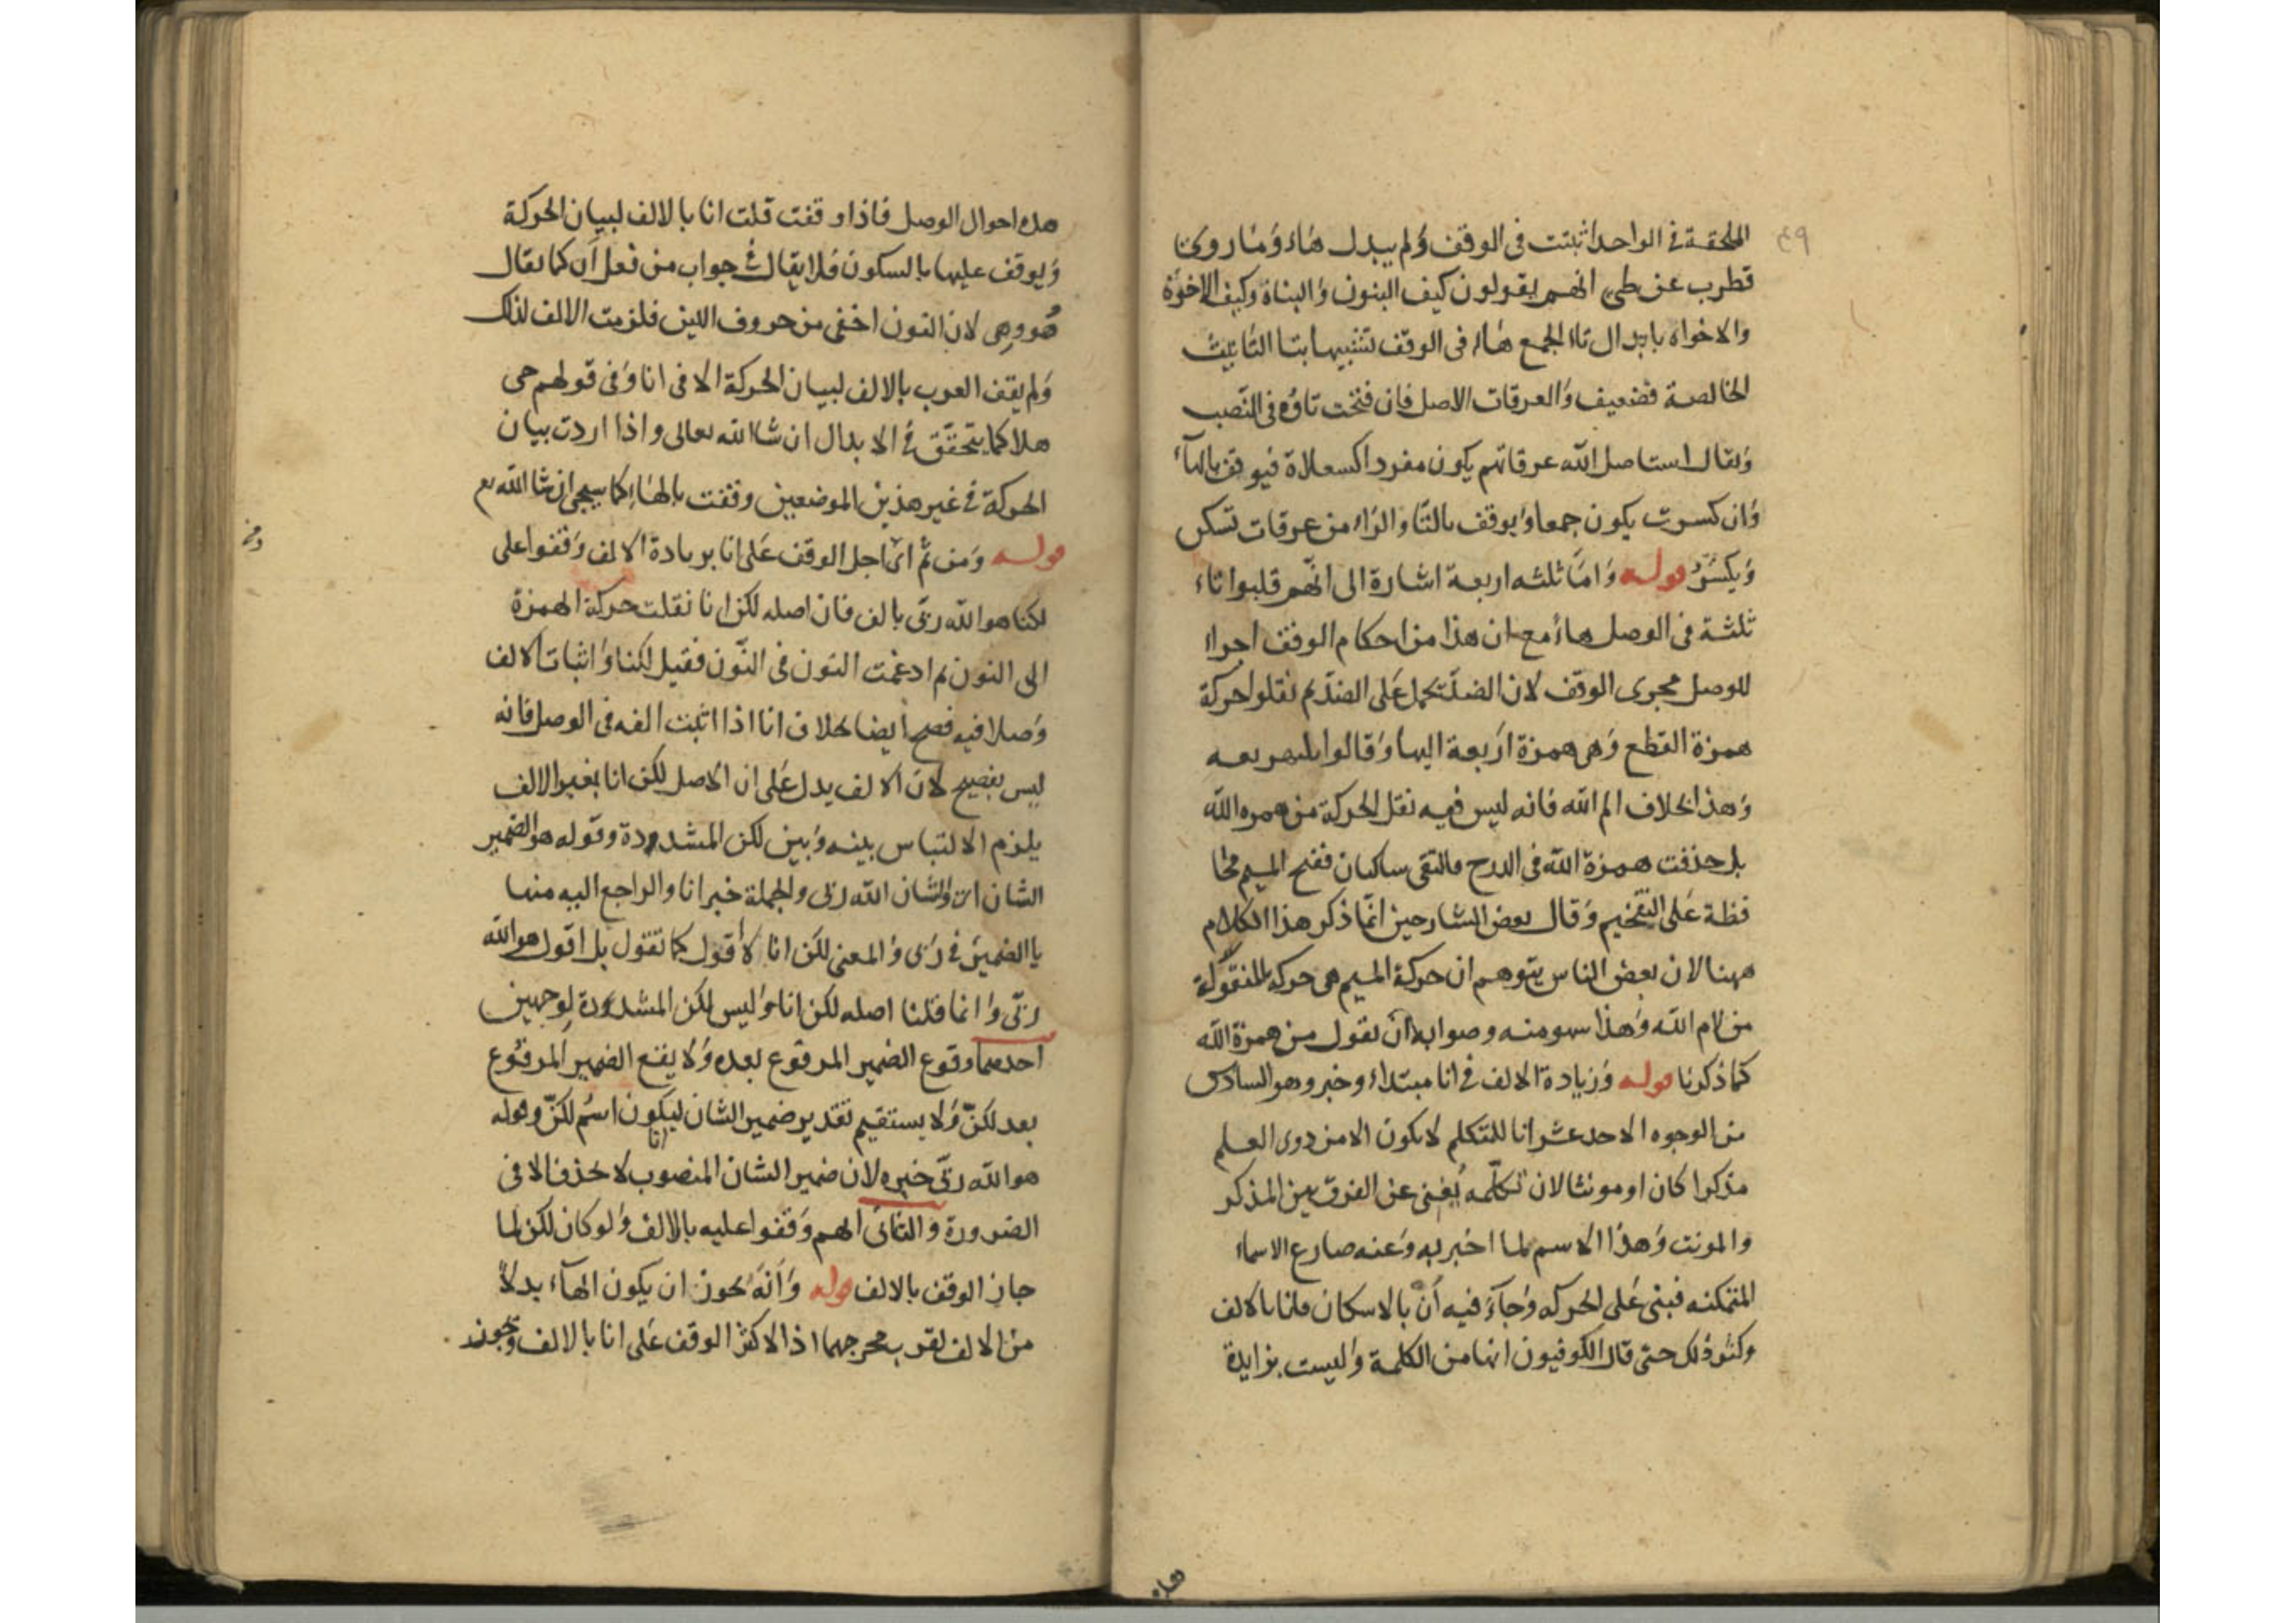 ٤٩
الملحقة في الواحد اثبتت فى الوقف ولم يبدل هاء وما روى
قطرب عن طي انهم يقولون كيف البنون والبناة وكيف الاخوة
والاخواه بابدال تاء الجمع هاء فى الوقف تشبيها بتا التانيث
الخالصة فضعيف والعرقات الاصل فان فتحت تاؤه فى النصب
ويقال استاصل الله عرقاتهم يكون مفردا كسعلاة فيوقف بالهآء
وان كسرت يكون جمعا ويوقف بالتا والراء من عرقات تسكن
ويكسر قوله واما ثلثه اربعة اشارة الى انهم قلبوا تاء
ثلثة فى الوصل هاء مع ان هذا من احكام الوقف اجراء
للوصل مجرى الوقف لان الضد يحمل على الضد ثم نقلوا حركة
همزة القطع وهى همزة اربعة اليها وقالوا ثلثهربعه
وهذا بخلاف الم الله فانه ليس فيه نقل الحركة من همزه الله
بل حذفت همزة الله فى الدرج فالتقى ساكنان ففتح الميم محا
فظة على التفخيم وقال بعض الشارحين انما ذكر هذا الكلام
ههنا لان بعض الناس يتوهم ان حركة الميم هى حركه المنقولة
من لام الله وهذا سهو منه وصوابه ان يقول من همزة الله
كما ذكرنا قوله وزيادة الالف فى انا مبتداء وخبر وهو السادس
من الوجوه الاحد عشر انا للمتكلم لا يكون الا من ذوى العلم
مذكرا كان او مونثا لان تكلمه يغنى عن الفرق بين المذكر
والمونت وهذا الاسم لما اخبر به وعنه ضارع الاسماء
المتمكنه فبنى على الحركه وجآء فيه ان بالاسكان وانا بالالف
وكثر ذلك حتى قال الكوفيون انها من الكلمة وليست بزايدة
هذه
هذه احوال الوصل فاذا وقفت قلت انا بالالف لبيان الحركة
ويوقف عليها بالسكون فلا يقال فى جواب من فعل ان كما يقال
هو وهى لان النون اخفى من حروف اللين فلزمت الالف لذلك
ولم يقف العرب بالالف لبيان الحركة الا فى انا وفى قولهم حى
هلا كما يتحقق فى الابدال ان شا الله تعالى واذا اردت بيان
الحركة فى غير هذين الموضعين وقفت بالهاء كما سيجى ان شا الله تع
قوله ومن ثم اى اجل الوقف على انا بزيادة الالف وقفوا على
لكنا هو الله ربى بالف فان اصله لكن انا نقلت حركة الهمزة
الى النون ثم ادغمت النون فى النون فقيل لكنا واثبات الالف
وصلا فيه فصح ايضا بخلاف انا اذا اثبت الفه فى الوصل فانه
ليس بفصيح لان الالف يدل على ان الاصل لكن انا بغير الالف
يلزم الالتباس بينه وبين لكن المشددة وقوله هو الضمير
الشان اى والشان الله ربى والجملة خبر انا والراجع اليه منها
يا الضمير فى ربى والمعنى لكن انا لا اقول كما تقول بل اقول هو الله
ربى وانما قلنا اصله لكن انا وليس لكن المشددة لوجهين
احدهما وقوع الضمير المرفوع بعده ولا يقع الضمير المرفوع
بعد لكن ولا يستقيم تقدير ضمير الشان ليكون اسم لكن وقوله
هو الله ربى خبره لان ضمير الشان المنصوب لا يحذف الا فى
الضرورة والثانى انهم وقفوا عليه بالالف ولو كان لكن لما
جاز الوقف بالالف قوله وانه يجوز ان يكون الهآء بدلا
من الالف لقرب مخرجهما اذ الاكثر الوقف على انا بالالف ويجوز